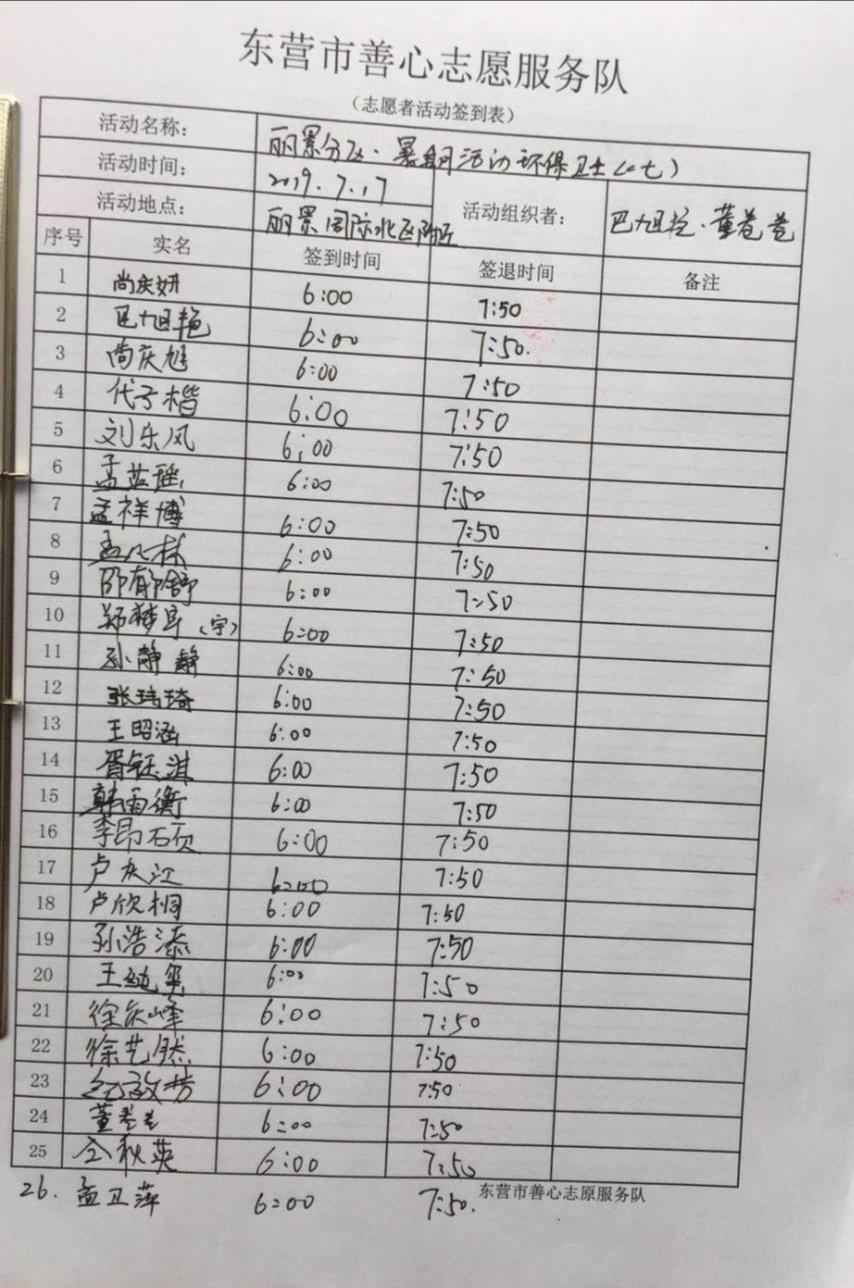 东营市善心志愿服务队
（志愿者活动签到表）
活动名称： 丽景分区·暑期活动环保卫士（七）
活动时间： 2019.7.17
活动地点： 丽景国际北区附近
活动组织者： 巴旭艳·董卷卷
序号 实名 签到时间 签退时间 备注
1 尚庆妍 6:00 7:50
2 巴旭艳 6:00 7:50.
3 尚庆旭 6:00 7:50
4 代子楷 6:00 7:50
5 刘乐风 6:00 7:50
6 孟茹瑶 6:00 7:50
7 孟祥博 6:00 7:50
8 孟凡栋 6:00 7:50
9 邵郁舒 6:00 7:50
10 郑梦 (宇) 6:00 7:50
11 孙静静 6:00 7:50
12 张玮琦 6:00 7:50
13 王昭涵 6:00 7:50
14 胥钰淇 6:00 7:50
15 韩雨衡 6:00 7:50
16 李昂 6:00 7:50
17 卢庆江 6:00 7:50
18 卢欣桐 6:00 7:50
19 孙浩添 6:00 7:50
20 王 6:00 7:50
21 徐庆峰 6:00 7:50
22 徐艺然 6:00 7:50
23 6:00 7:50
24 董卷卷 6:00 7:50
25 仝秋英 6:00 7:50
26. 孟卫萍 6:00 7:50.
东营市善心志原服务队